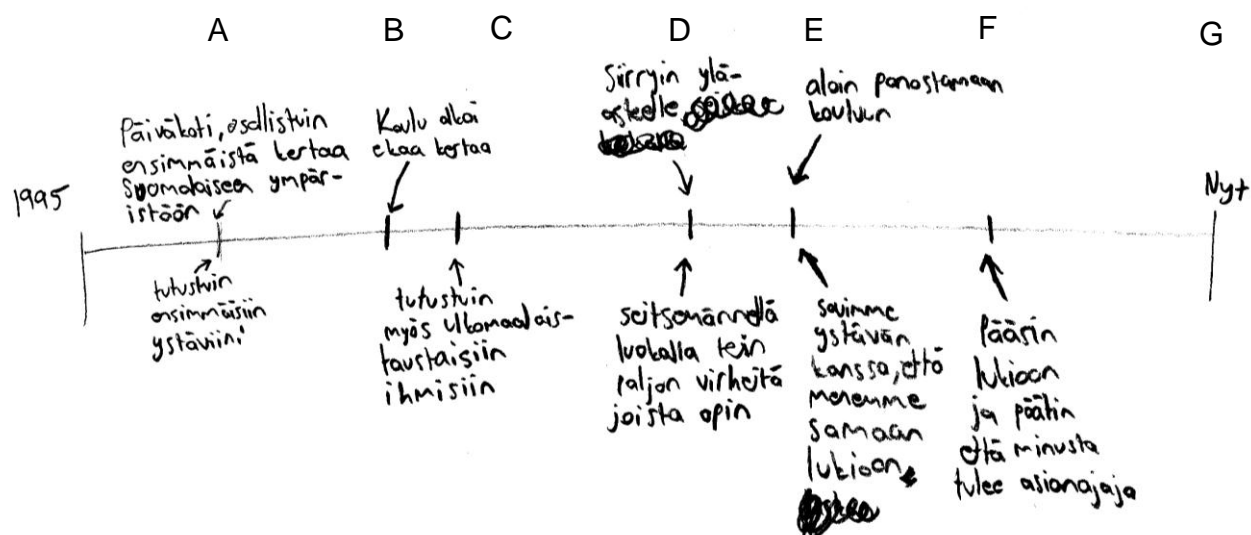 A
B
C
D
E
F
G
1995
Päiväkoti, osallistuin
ensimmäistä kertaa
Suomalaiseen ympär-
istöön
tutustuin
ensimmäisiin
ystäviin!
Koulu alkoi
ekaa kertaa
tutustuin
myös ulkomaalais-
taustaisiin
ihmisiin
Siirryin ylä-
asteelle
seitsemännellä
luokalla tein
paljon virheitä
joista opin
aloin panostamaan
kouluun
sovimme
ystävän
kanssa, että
menemme
samaan
lukioon.
Pääsin
lukioon
ja päätin
että minusta
tulee asianajaja
Nyt